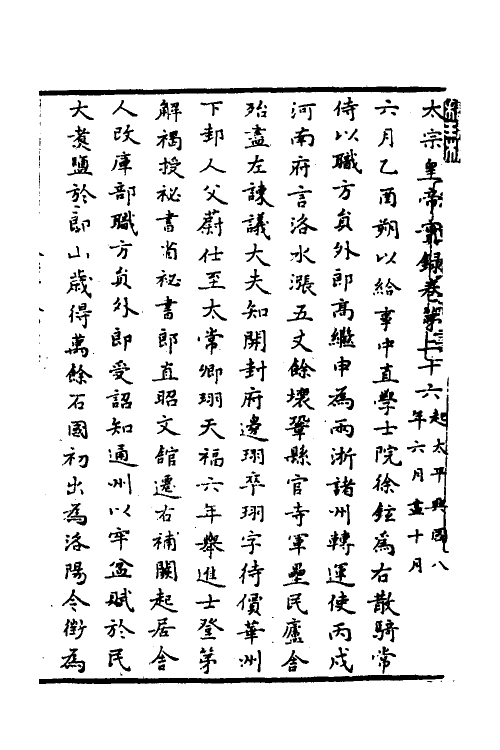 太宗皇帝實錄卷第二十六起太平興國八年六月盡十月
六月乙酉朔以給事中直學士院徐鉉爲右散騎常
侍以職方負外郎高繼申爲兩浙諸州轉運使丙戌
河南府言洛水漲五丈餘壞鞏縣官寺軍壘民廬舍
殆盡左諫議大夫知開封府邊珝卒珝字待價華州
下邽人父蔚仕至太常卿珝天福六年舉進士登第
解褐授祕書省祕書郎直昭文館遷右補闕起居舍
人改庫部職方負外郎受詔知通州以牢盆賦於民
大煑鹽於郎山歲得萬餘石國初出爲洛陽令徵爲